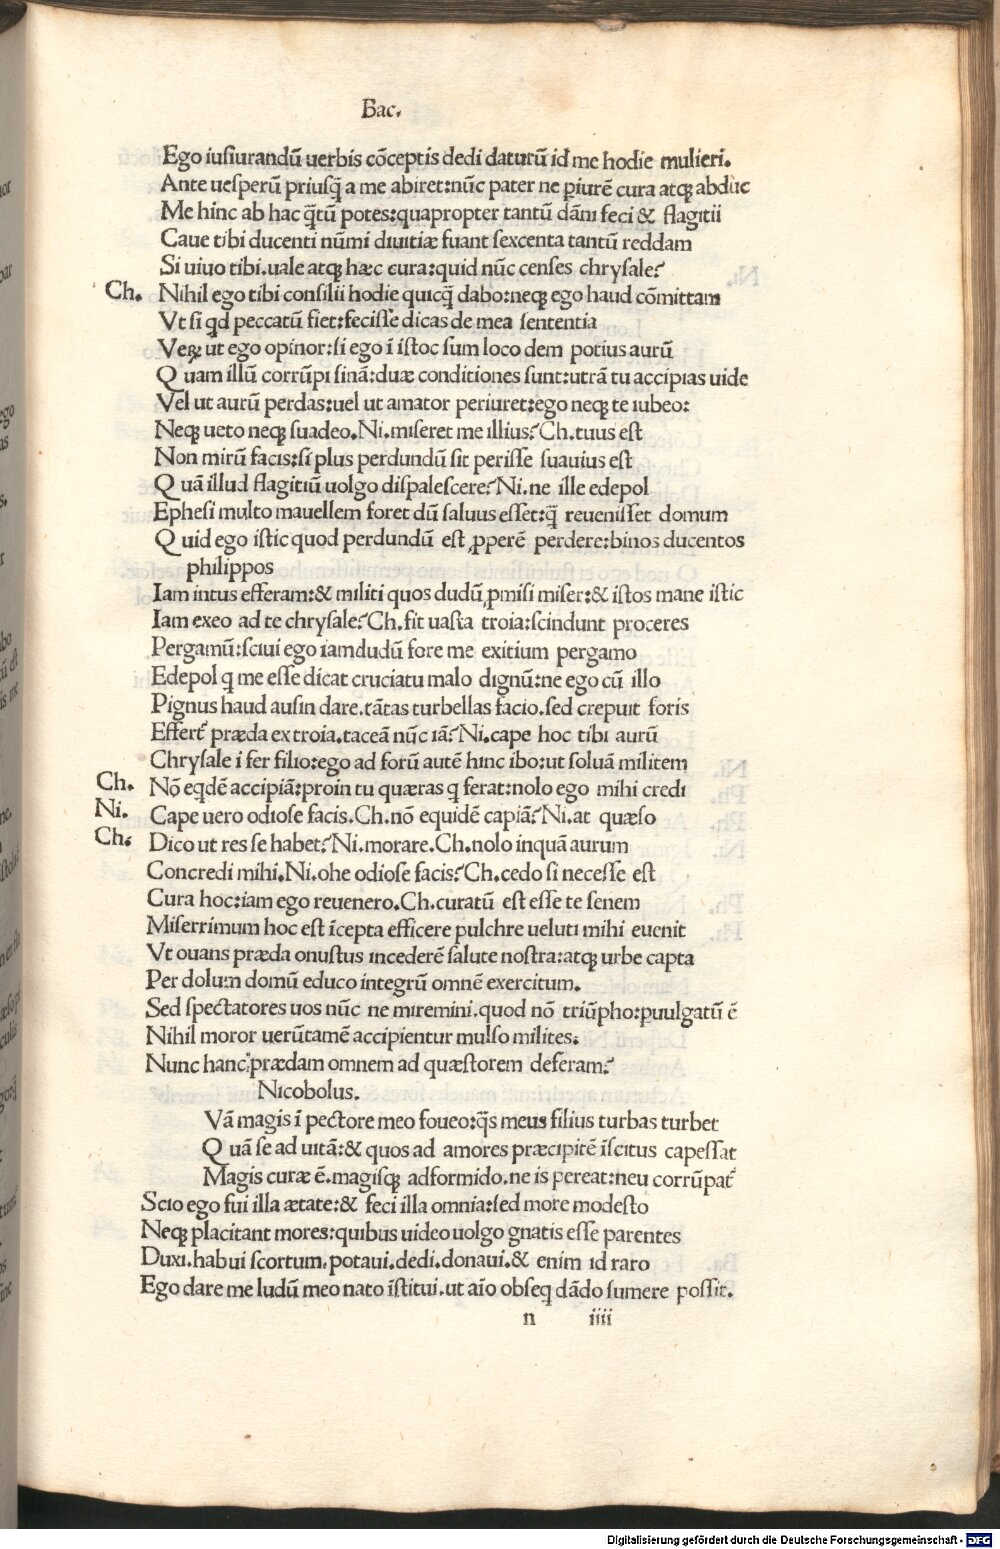 Bac.
Ego iusiurandū uerbis cōceptis dedi daturū id me hodie mulieri.
Ante uesperū priusq̄ a me abiret:nūc pater ne piurē cura atq; abduc
Me hinc ab hac q̄tū potes:quapropter tantū dāni feci & flagitii
Caue tibi ducenti nūmi diuitiæ fuant sexcenta tantū reddam
Si uiuo tibi.uale atq; hæc cura:quid nūc censes chrysale?
Ch. Nihil ego tibi consilii hodie quicq̄ dabo:neq; ego haud cōmittam
Vt si qd peccatū fiet:fecisse dicas de mea sententia
Veꝝ ut ego opinor:si ego ī istoc sum loco dem potius aurū
Q uam illū corrūpi sinā:duæ conditiones sunt:utrā tu accipias uide
Vel ut aurū perdas:uel ut amator periuret:ego neq; te iubeo:
Neq; ueto neq; suadeo.Ni.miseret me illius?Ch.tuus est
Non mirū facis:si plus perdundū sit perisse suauius est
Q uā illud flagitiū uolgo dispalescere?Ni.ne ille edepol
Ephesi multo mauellem foret dū saluus esset:q̄ reuenisset domum
Q uid ego istic quod perdundū est ꝓperē perdere:binos ducentos
philippos
Iam intus efferam:& militi quos dudū ꝓmisi miser:& istos mane istic
Iam exeo ad te chrysale?Ch.fit uasta troia:scindunt proceres
Pergamū:sciui ego iamdudū fore me exitium pergamo
Edepol q me esse dicat cruciatu malo dignū:ne ego cū illo
Pignus haud ausin dare.tātas turbellas facio.sed crepuit foris
Effert̄ præda ex troia.taceā nūc iā?Ni.cape hoc tibi aurū
Chrysale i fer filio:ego ad forū autē hinc ibo:ut soluā militem
Ch. Nō eqdē accipiā:proin tu quæras q ferat:nolo ego mihi credi
Ni. Cape uero odiose facis.Ch.nō equidē capiā?Ni.at quæso
Ch. Dico ut res se habet?Ni.morare.Ch.nolo inquā aurum
Concredi mihi.Ni.ohe odiose facis?Ch.cedo si necesse est
Cura hoc:iam ego reuenero.Ch.curatū est esse te senem
Miserrimum hoc est īcepta efficere pulchre ueluti mihi euenit
Vt ouans præda onustus incederē salute nostra:atq; urbe capta
Per dolum domū educo integrū omnē exercitum.
Sed spectatores uos nūc ne miremini.quod nō triūpho:puulgatū ē
Nihil moror uerūtamē accipientur mulso milites.
Nunc hanc prædam omnem ad quæstorem deferam?
Nicobolus.
Vā magis ī pectore meo foueo:q̄s meus filius turbas turbet
Q uā se ad uitā:& quos ad amores præcipitē īscitus capessat
Magis curæ ē.magisq; adformido.ne is pereat:neu corrūpat̄
Scio ego fui illa ætate:& feci illa omnia:sed more modesto
Neq; placitant mores:quibus uideo uolgo gnatis esse parentes
Duxi.habui scortum.potaui.dedi.donaui.& enim id raro
Ego dare me ludū meo nato īstitui.ut aīo obseq dādo sumere possit.
n iiii
Digitalisierung gefördert durch die Deutsche Forschungsgemeinschaft - DFG